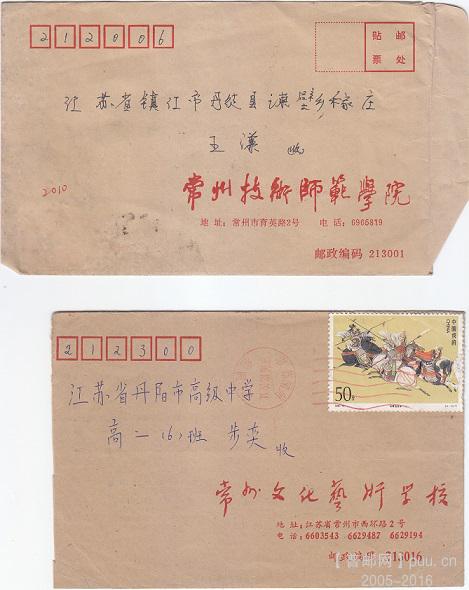 212006
贴邮
票处
江苏省镇江市丹徒县谏壁乡
王 汉 收
2010
常州技術師範學院
地 址: 常州市育英路2号 电 话: 6965819
邮政编码 213001
212300
中国邮政
CHINA
50分
江苏省丹阳市高级中学
高二(6)班 步奕 收
常州文化藝術学校
地 址: 江苏省常州市西环路2号
电 话: 6603543 6629487 6629194
邮政编码 213016
【普邮网】puu.cn
2005-2016